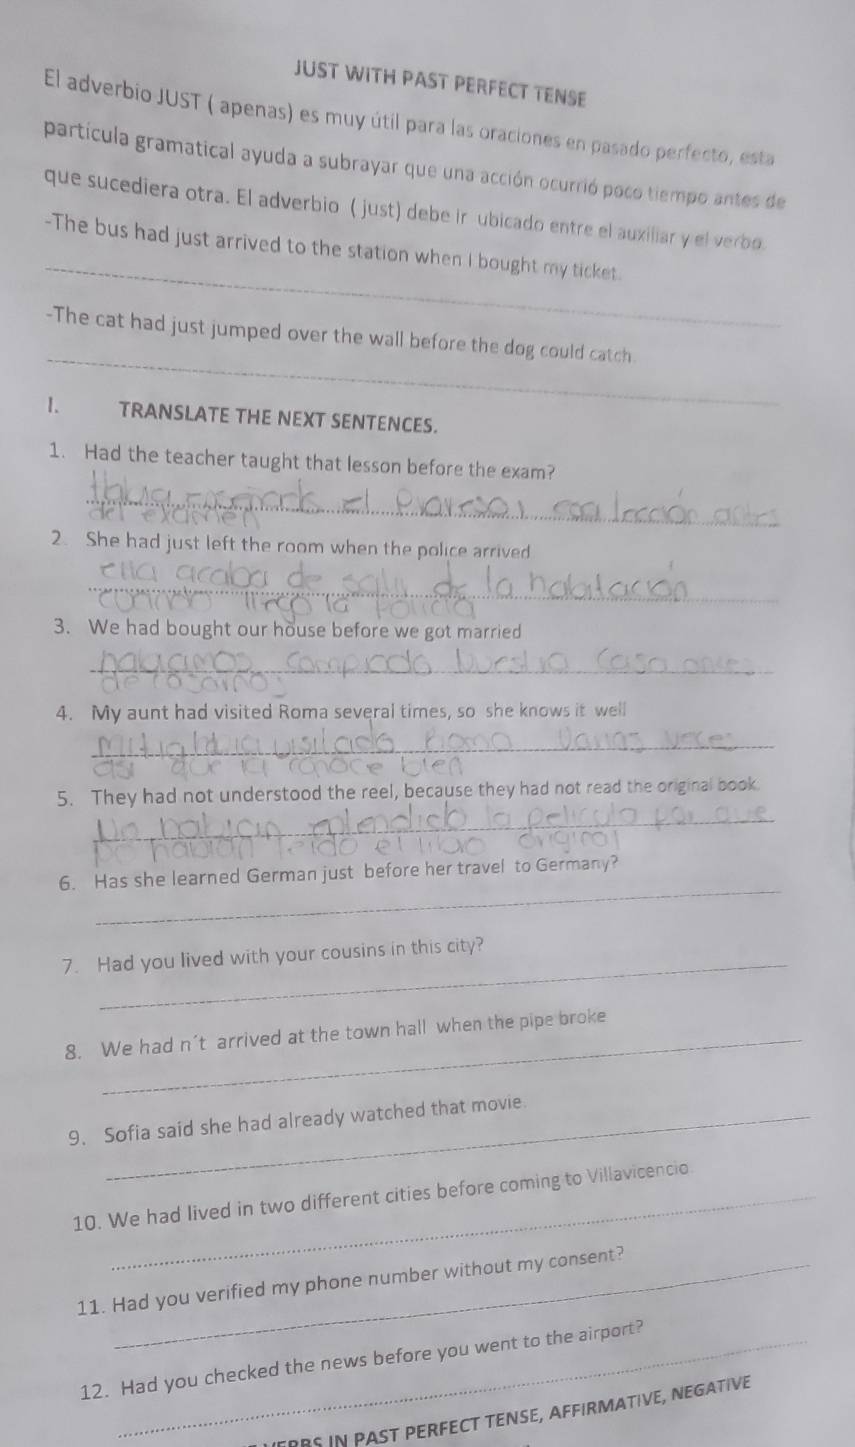 JUST WITH PAST PERFECT TENSE
El adverbio JUST ( apenas) es muy útil para las oraciones en pasado perfecto, esta
partícula gramatical ayuda a subrayar que una acción ocurrió poco tiempo antes de
que sucediera otra. El adverbio ( just) debe ir ubicado entre el auxiliar y el verbo.
-The bus had just arrived to the station when I bought my ticket.
-The cat had just jumped over the wall before the dog could catch
I. TRANSLATE THE NEXT SENTENCES.
1. Had the teacher taught that lesson before the exam?
el esa lección antes
del examen
2. She had just left the room when the police arrived
ella acaba de salir de la habitación
cuando llego la policia
3. We had bought our house before we got married
casa antes
4. My aunt had visited Roma several times, so she knows it well
visitado Roma varias veces
asi que la conoce bien
5. They had not understood the reel, because they had not read the original book.
No habian la pelicula por que
no habian leido el libro original
6. Has she learned German just before her travel to Germany?
7. Had you lived with your cousins in this city?
8. We had n´t arrived at the town hall when the pipe broke
9. Sofia said she had already watched that movie.
10. We had lived in two different cities before coming to Villavicencio
11. Had you verified my phone number without my consent?
12. Had you checked the news before you went to the airport?
IN PAST PERFECT TENSE, AFFIRMATIVE, NEGATIVE